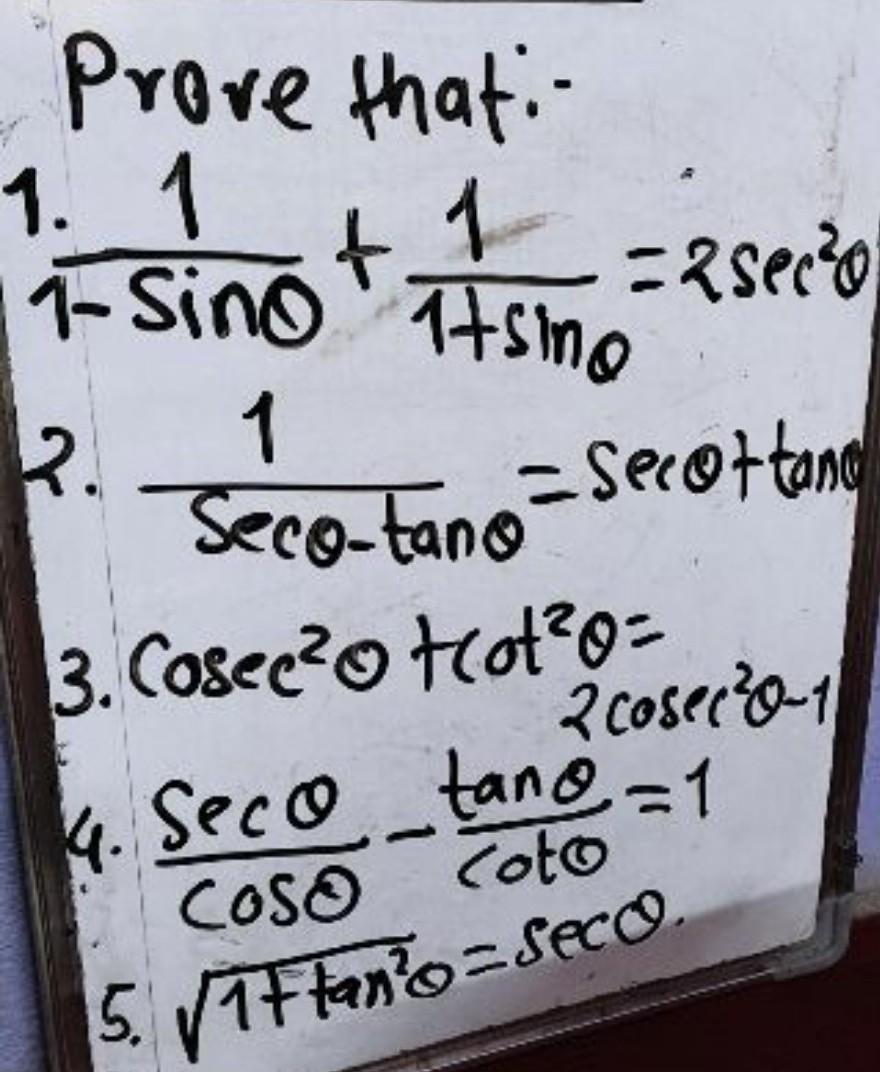 Prove that:-
1. 1/(1-Sinθ) + 1/(1+sinθ) = 2sec²θ
2. 1/(Secθ-tanθ) = Secθ+tanθ
3. Cosec²θ +cot²θ=
2cosec²θ-1
4. Secθ/cosθ - tanθ/cotθ = 1
5. √(1+tan²θ) = secθ.